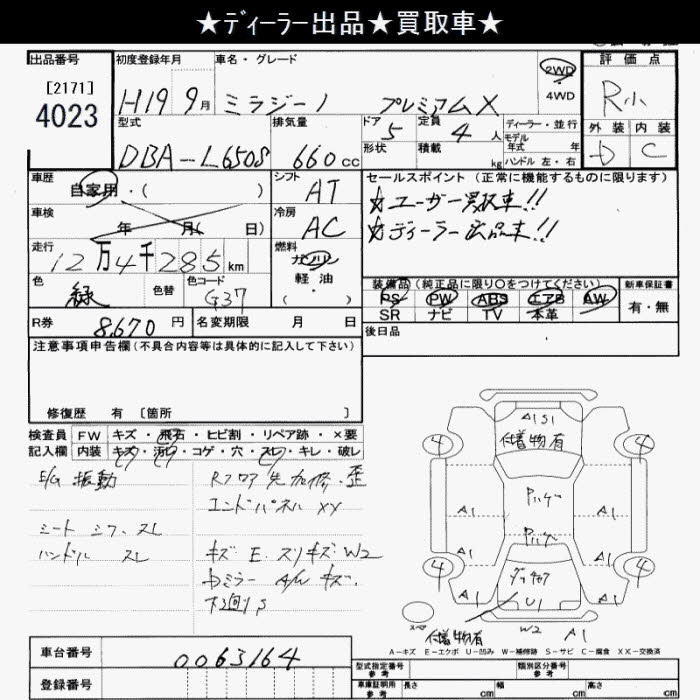 ★ﾃﾞィーラー出品★買取車★
出品番号
[2171]
4023
初度登録年月
H19 9月
車名・グレード
ミラジーノ プレミアムX
2WD
4WD
評価点
R小
外装 内装
D C
型式
DBA-L650S
排気量
660cc
ドア
5
形状
定員
4人
積載
kg
ディーラー・並行
モデル
年式 年
ハンドル 左・右
車歴
自家用・( )
シフト
AT
セールスポイント (正常に機能するものに限ります)
☆ユーザー買取車!!
☆ディーラー出品車!!
車検
年 月( 日)
冷房
AC
走行
12万4千285km
燃料
ガソリン
軽油
( ・ )
色
緑
色替
色コード
G37
装備品(純正品に限り〇をつけてください)
PS PW ABS エアB AW
SR ナビ TV 本革
新車保証書
有・無
R券
8,670円
名変期限 月 日
後日品
注意事項申告欄(不具合内容等は具体的に記入して下さい)
修復歴 有 [箇所 ]
検査員 FW キズ・飛石・ヒビ割・リペア跡・×要
記入欄 内装 キズ・汚レ・コゲ・穴・スレ・キレ・破レ
E/G 振動
シート シワ、スレ
ハンドル スレ
Rフロア 先加修・歪
エンドパネル XX
キズ E. スリキズ W2
A/W キズ.
下廻りS
A1 S1
付着物有
4
4
Pいゲ
Pいゲ
A1
A1
A1
A1
A1
4
4
U1
スペア
付着物有
W2
A1
A-キズ E-エクボ U-凹み W-補修跡 S-サビ C-腐食 XX-交換済
車台番号
0063164
登録番号
型式指定番号
参考
類別区分番号
参考
車庫証明用
参考
長さ cm
幅 cm
高さ cm